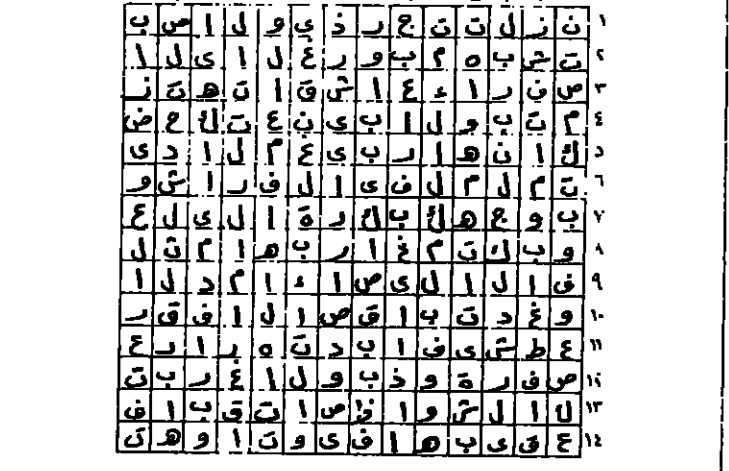 ١ ن ز ل ت ت ح ر ذ ي و ل ا ص ب
٢ ت ش ب ه م ب و ر غ ل ا ى ل ا
٣ ص ف ر ا ء ع ا ش ق ا ت ه ت ز
٤ م ت ب و ل ا ب ى ن ع ت ك ح ض
٥ ك ا ن ه ا ر ب ى ع م ل ا د ى
٦ ت م ل م ل ف ى ا ل ف ر ا ش و
٧ ب و ج ه ك ب ك ر ة ا ل ى ل ع
٨ و ب ك ت م غ ا ر ب ه ا م ت ل
٩ ف ا ل ا ل ى ص ا ء ا م د ل ا
١٠ و غ د ت ب ا ق ص ا ل ا ف ق ر
١١ ع ط ش ى ف ا ب د ت ه ر ا ر ع
١٢ ص ف ر ة و ذ ب و ل ا غ ر ب ت
١٣ ل ا ل ش و ا ص ا ت ق ب ا ف
١٤ ع ق ى ب ه ا ف ى و ت ا و ه ت